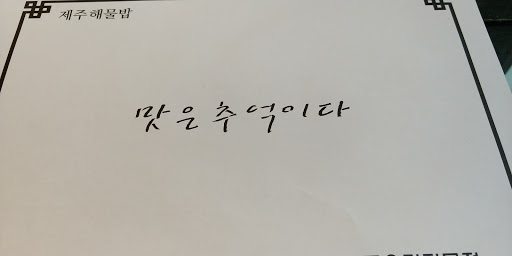 제주해물밥
맛은추억이다